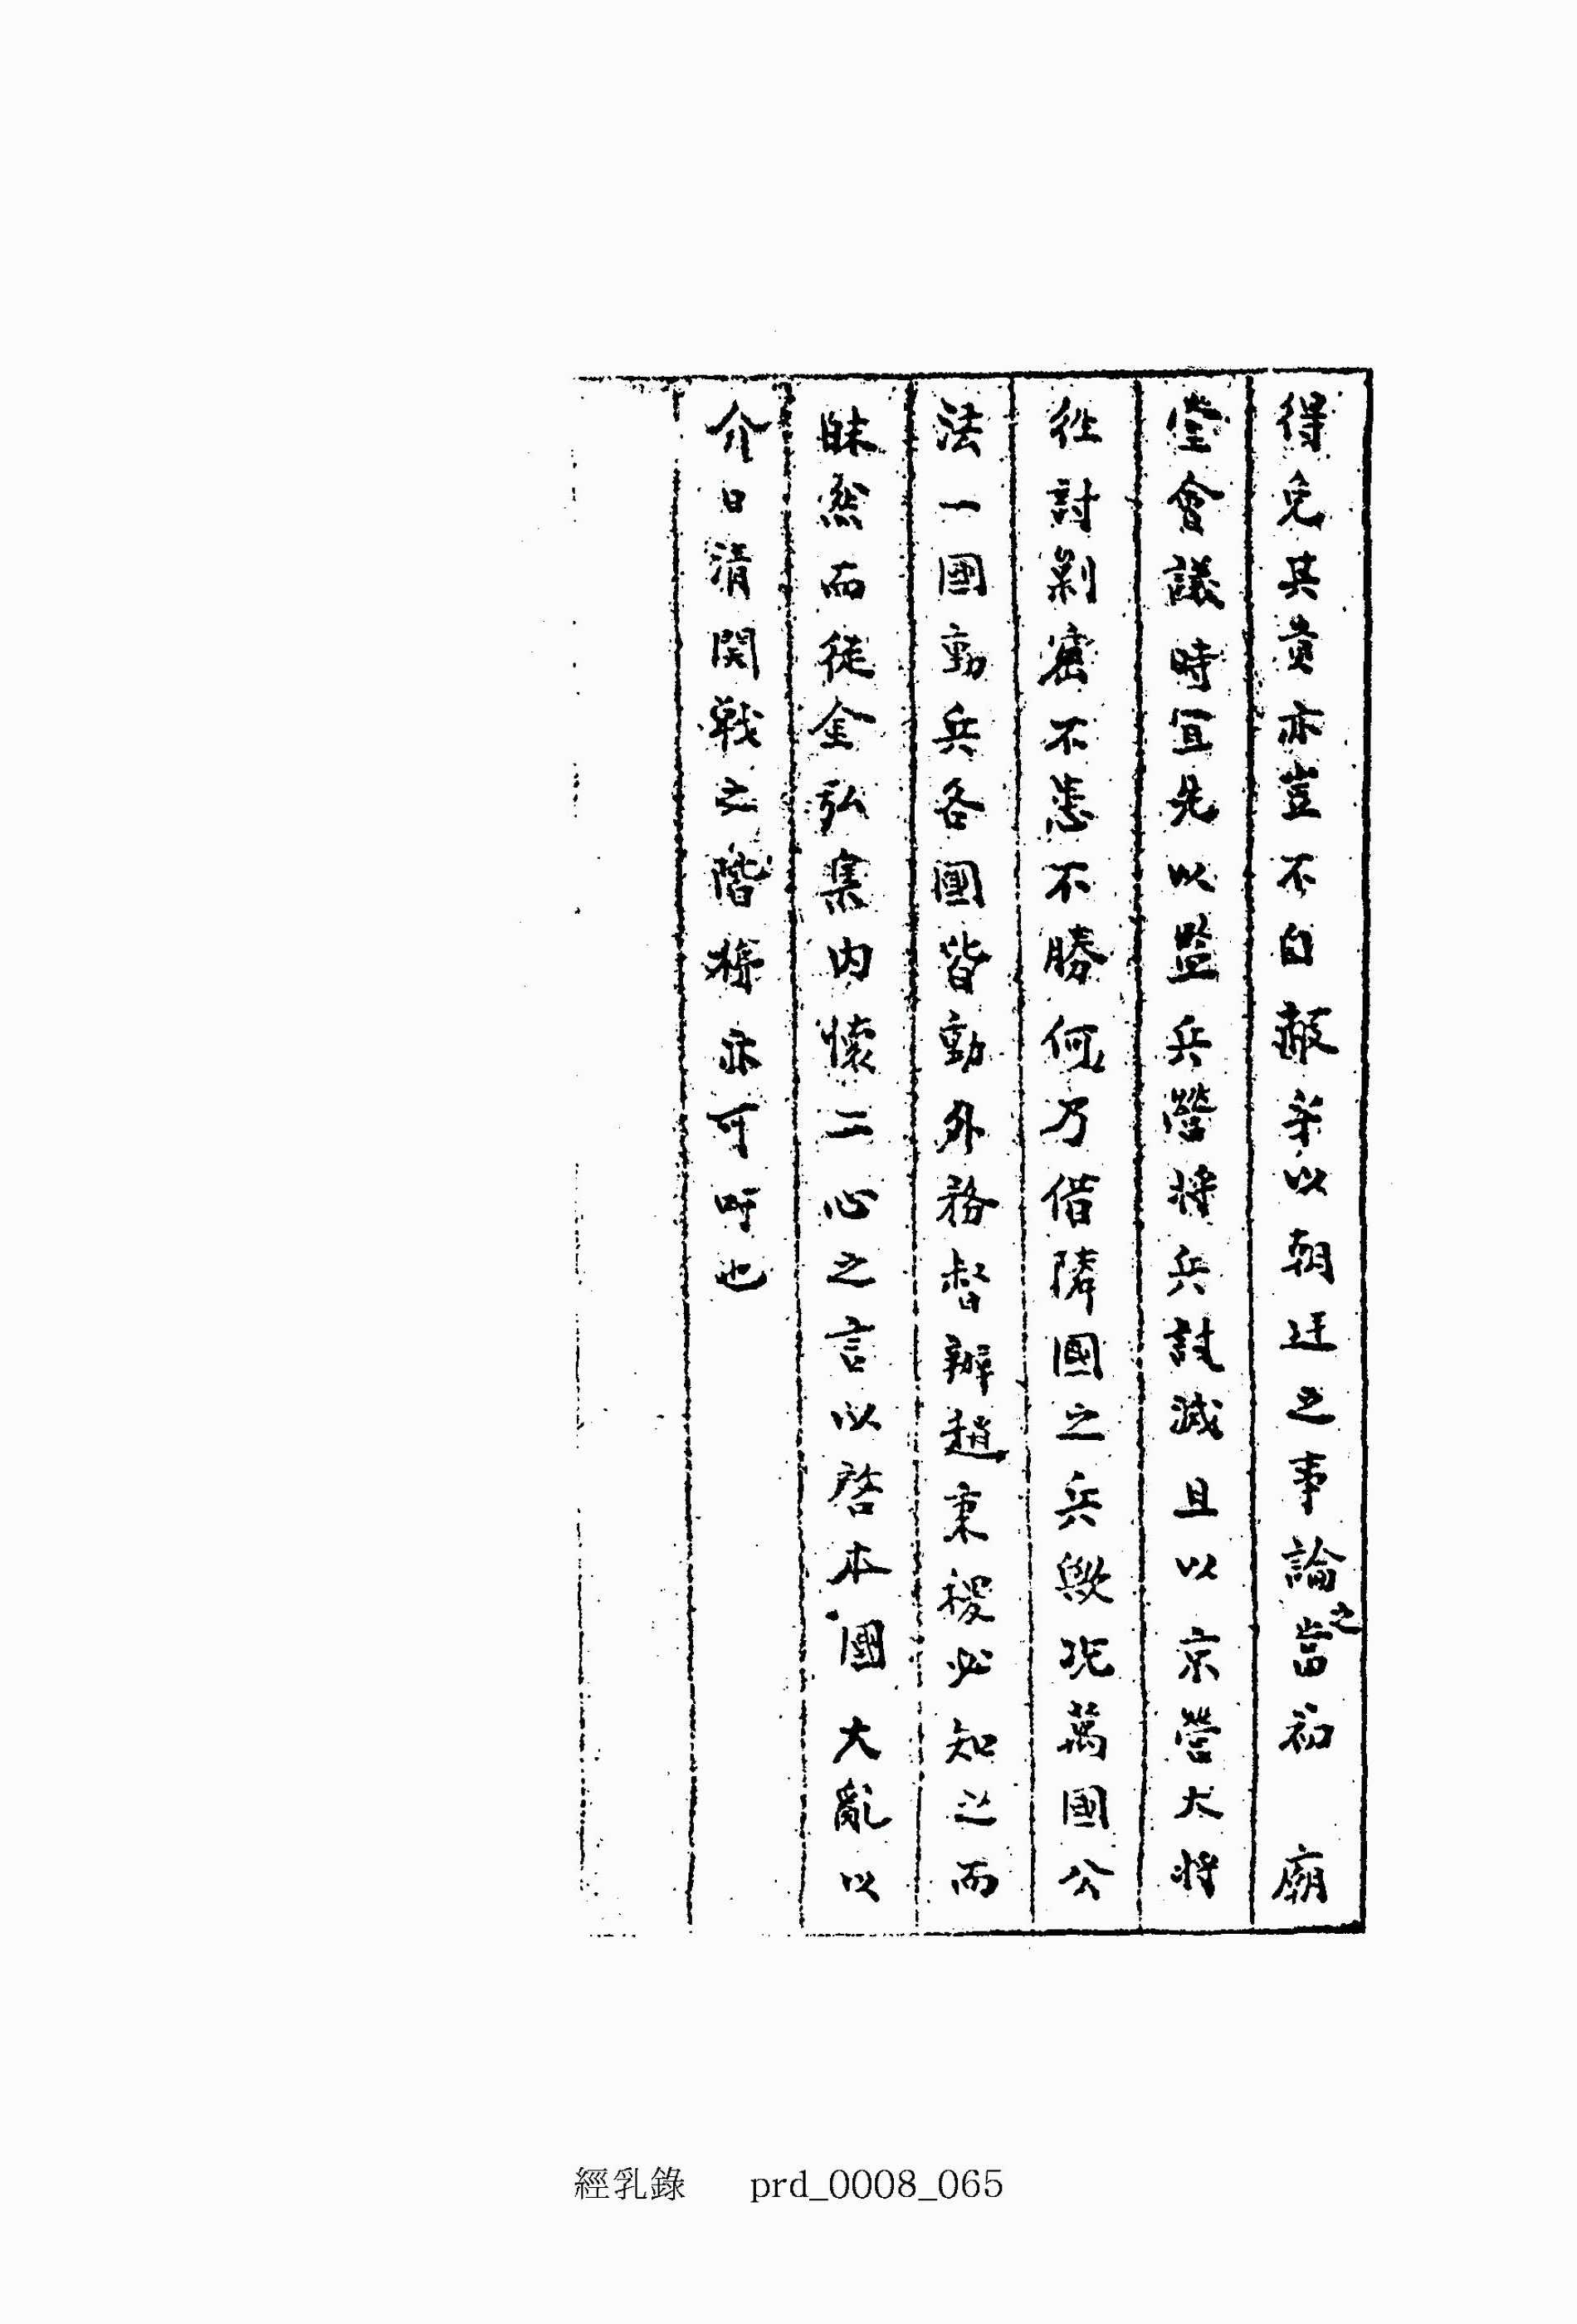 得免其責亦豈不白㪣乎以朝廷之事論之當初 廟
堂會議時宜先以監兵營將兵討滅且以京營大將
往討剿窟不患不勝何乃借隣國之兵歟況萬國公
法一國動兵各國皆動外務督辦趙秉稷必知之而
昧然而徒金弘集內懷二心之言以啓本國大亂以
介日清開戰之階梯亦可吁也
經乳錄 prd_0008_065